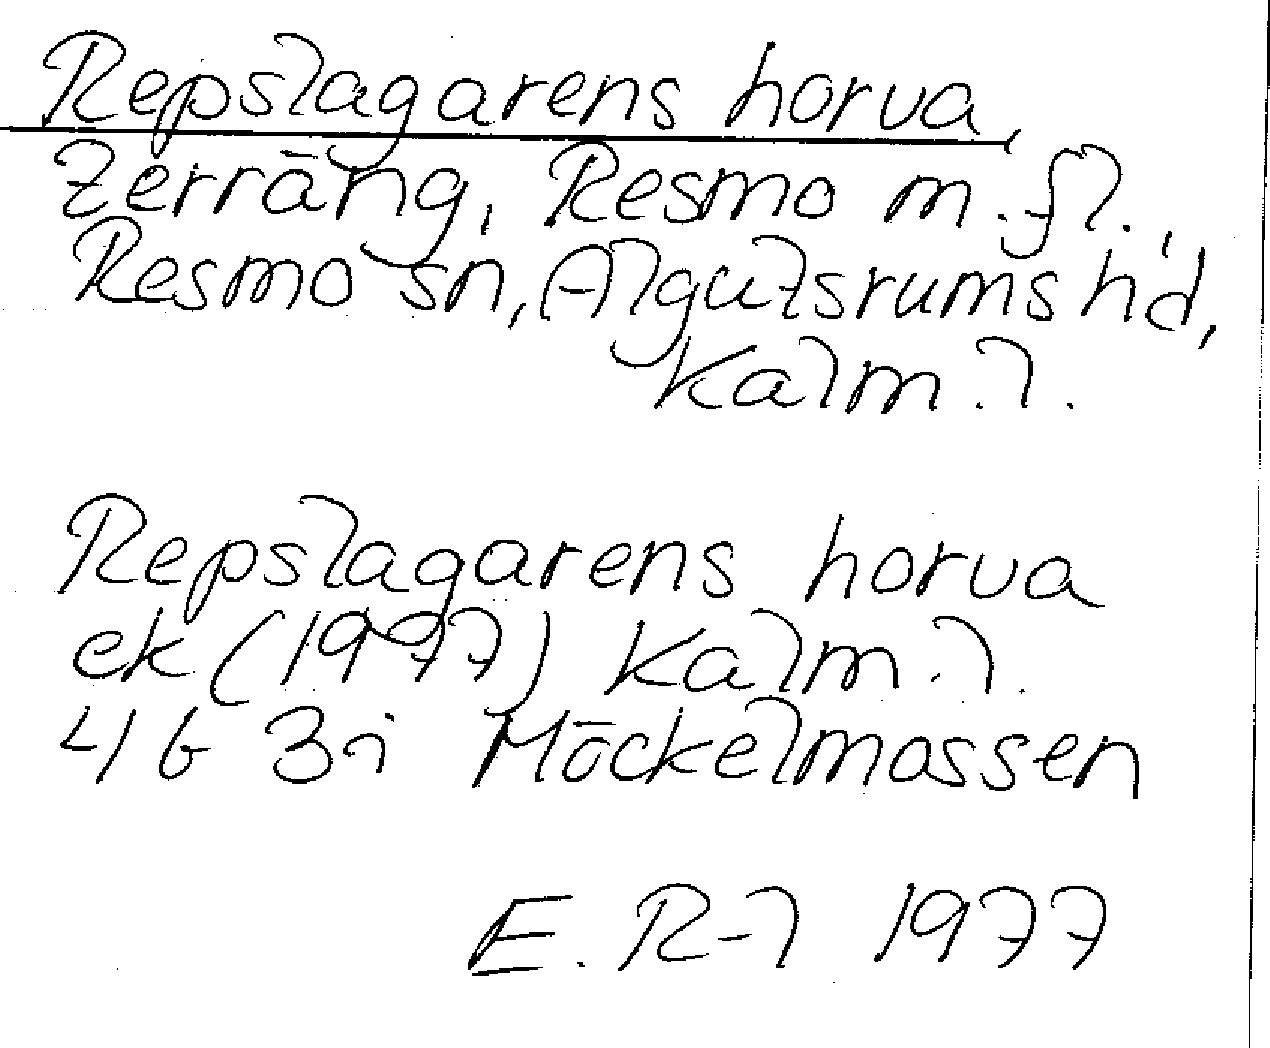 Repslagarens horva,
Terräng, Resmo m.fl.,
Resmo sn, Algutsrums h'd,
Kalm.l.
Repslagarens horva
ek (1977) Kalm.l.
4G 3i Möckelmossen
E. R-l 1977